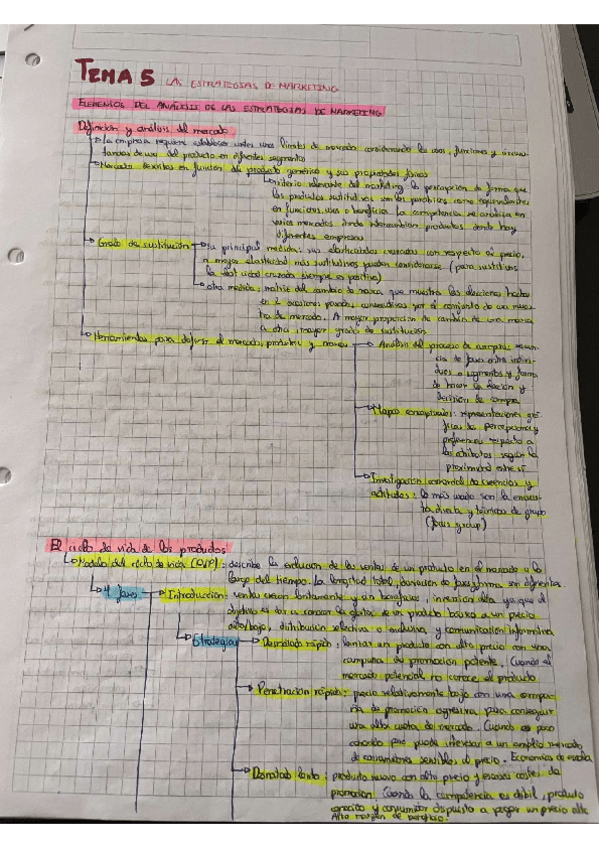 TEMA 5 LAS ESTRATEGIAS DE MARKETING
ELEMENTOS DEL ANÁLISIS DE LAS ESTRATEGIAS DE MARKETING
Definición y análisis del mercado
La empresa requiere establecer unos límites de mercado considerando los usos, funciones y
del producto en diferentes segmentos
Mercados descritos en función del producto genérico y sus propiedades físicas
criterio relevante del marketing la percepción de forma que
los productos sustitutivos son los percibidos como equivalentes
en funciones, usos o beneficios. La competencia se analiza en
varios mercados donde intervendrían productos donde hay
diferentes empresas
Grado de sustitución
su principal medida: sus elasticidades cruzadas con respecto al precio,
a mayor elasticidad más sustitutivos pueden considerarse (para sustitutivos
la elasticidad cruzada siempre es positiva)
otra medida: matriz del cambio de marca, que muestra las elecciones hechas
en 2 ocasiones pasadas consecutivas por el conjunto de una
de mercado. A mayor proporción de cambio de una marca
a otra, mayor grado de sustitución
Herramientas para definir el mercado, producto y marca
Análisis del proceso de compra:
de fases entre
o segmentos y forma
de hacer la elección y
decisión de compra
Mapas conceptuales: representaciones
de percepciones y
preferencias respecto a
los atributos según la
proximidad entre sí
Investigación comercial de creencias y
actitudes: lo más usado son la
directa y técnicas de grupo
(focus group)
El ciclo de vida de los productos
Modelo del ciclo de vida (CVP): describe la evolución de las ventas de un producto en el mercado a lo
largo del tiempo. La longitud total, duración de fases y forma son diferentes.
4 fases
Introducción: ventas crecen lentamente y sin beneficios, inversión alta ya que el
objetivo es dar a conocer la oferta de un producto básico a un precio
alto/bajo, distribución selectiva o exclusiva, y comunicación informativa
Estrategias
Desnatado rápido: lanzar un producto con alto precio con una
campaña de promoción potente. Cuando el
mercado potencial no conoce el producto
Penetración rápida: precio relativamente bajo con una
de promoción agresiva, para conseguir
una alta cuota de mercado. Cuando es poco
conocido pero puede interesar a un amplio mercado
de consumidores sensibles al precio. Economías de escala
Desnatado lento: producto nuevo con alto precio y escasos costes de
promoción. Cuando la competencia es débil, producto
conocido y consumidor dispuesto a pagar un precio alto
Alto margen de beneficio.